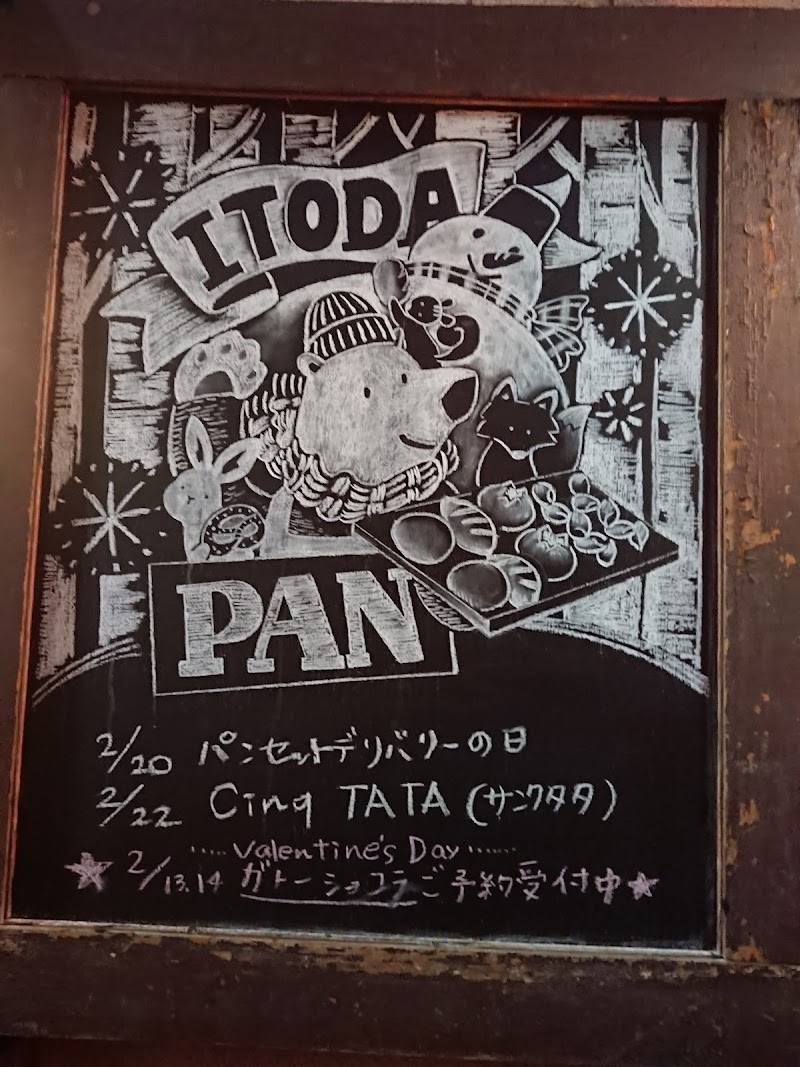 ITODA
PAN
2/20 パンセットデリバリーの日
2/22 Cinq TATA (サンクタタ)
..... Valentine's Day ......
★ 2/13.14 ガトーショコラご予約受付中★